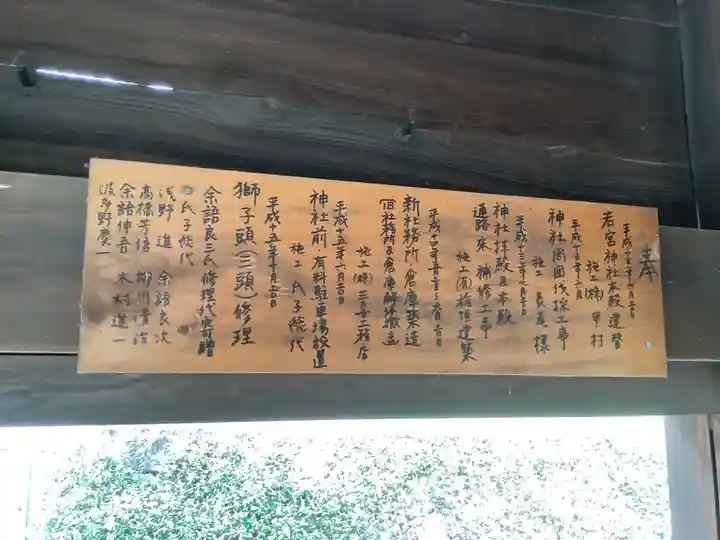 奉
平成十三年六月
若宮神社本殿建替
施工(株)甲村
平成十三年六月
神社周囲伐採工事
施工 様
平成十三年七月吉日
神社拝殿より本殿
通路床補修工事
施工(有)板垣建築
平成十四年
新社務所・倉庫築造
旧社務所・倉庫解体撤去
施工(株)工務店
平成十五年六月吉日
神社前・有料駐車場設置
施工 氏子総代
平成十五年十月吉日
獅子頭(三頭)修理
余語良三氏修理代寄贈
氏子総代
浅野 進 余語良次
高橋芳信 柳川清治
余語伸吾 木村進一
波多野慶一